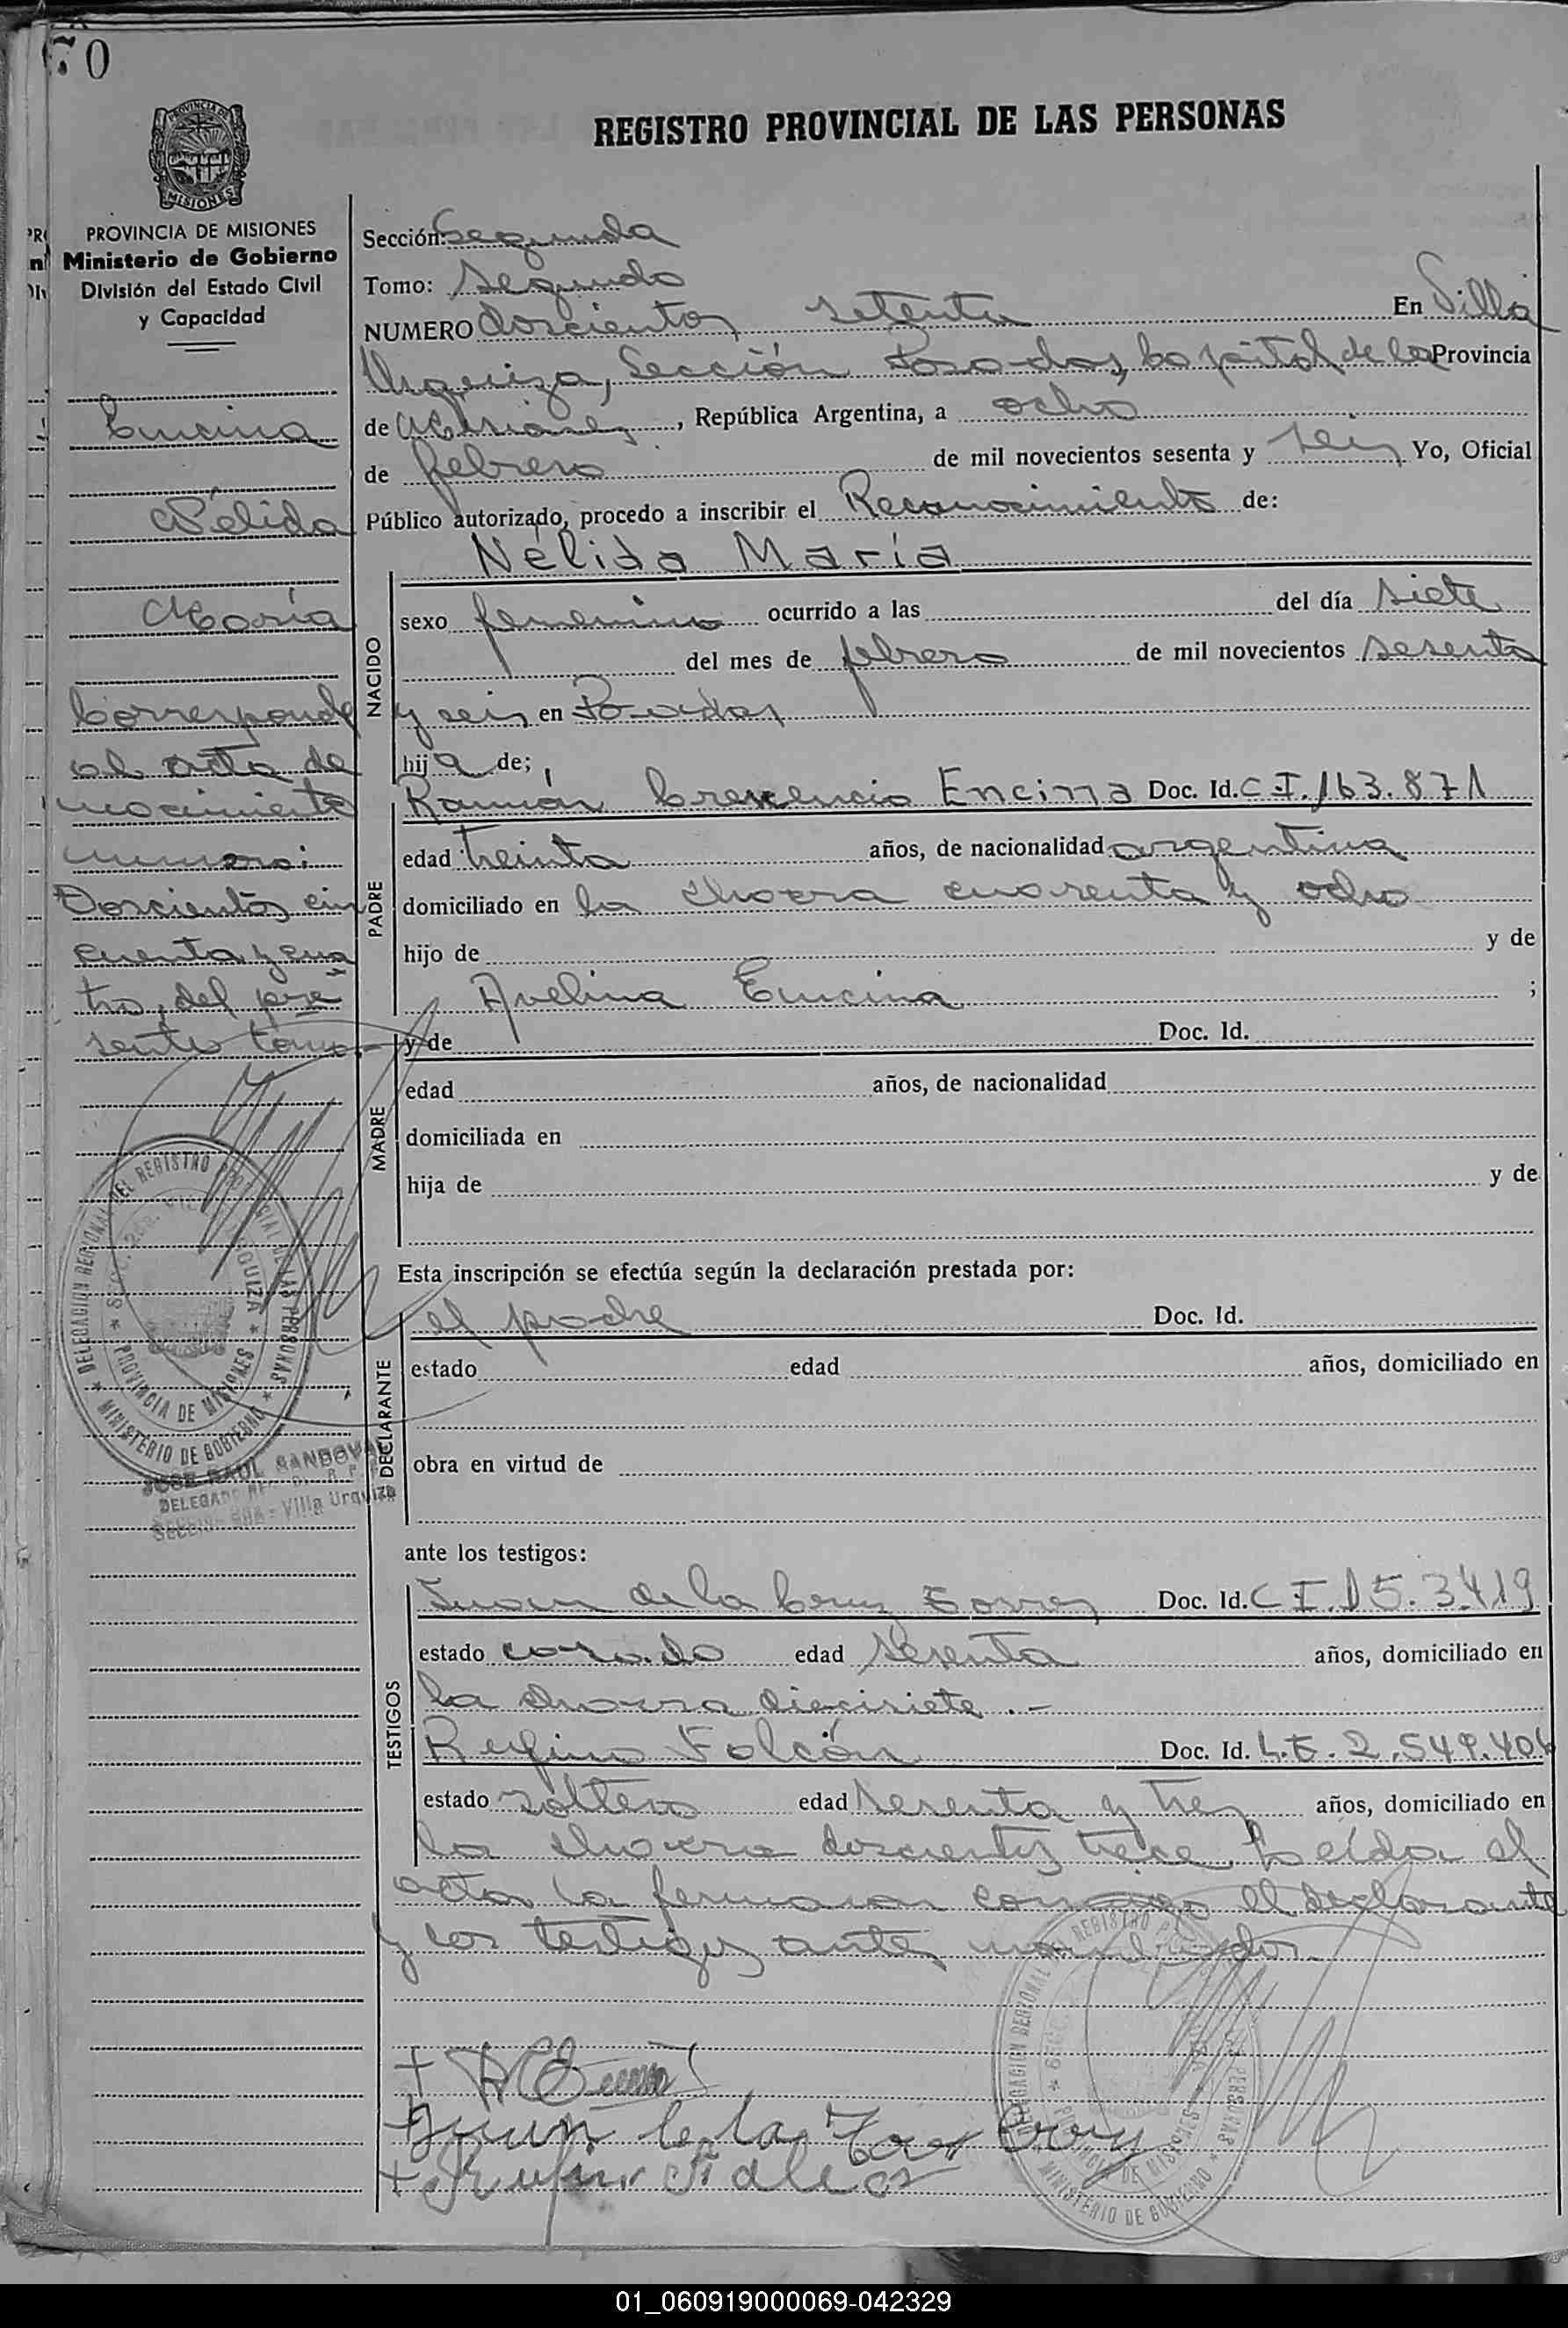 70
PROVINCIA DE
MISIONES
REGISTRO PROVINCIAL DE LAS PERSONAS
PROVINCIA DE MISIONES
Ministerio de Gobierno
División del Estado Civil
y Capacidad
Encina
Nélida
María
Corresponde
al acta de
nacimiento
número:
Doscientos cin
cuenta y cua
tro, del pre
sente tomo.-
Sección: Segunda
Tomo: Segundo
NUMERO doscientos setenta En Villa
Urquiza, Sección Posadas, Capital de la Provincia
de Misiones, República Argentina, a ocho
de febrero de mil novecientos sesenta y seis Yo, Oficial
Público autorizado, procedo a inscribir el Reconocimiento de:
Nélida María
NACIDO
sexo femenino ocurrido a las del día siete
del mes de febrero de mil novecientos sesenta
y seis en Posadas
hija de;
PADRE
Ramón Crescencio Encina Doc. Id. C.I. 163.871
edad treinta años, de nacionalidad argentina
domiciliado en la chacra cuarenta y ocho
hijo de y de
Avelina Encina ;
MADRE
y de Doc. Id.
edad años, de nacionalidad
domiciliada en
hija de y de
Esta inscripción se efectúa según la declaración prestada por:
DECLARANTE
el padre Doc. Id.
estado edad años, domiciliado en
obra en virtud de
ante los testigos:
TESTIGOS
Juan de la Cruz Torres Doc. Id. C.I. 153.419
estado casado edad sesenta años, domiciliado en
la chacra diecisiete.-
Falcón Doc. Id. L.E. 2.549.404
estado soltero edad sesenta y tres años, domiciliado en
la chacra doscientos trece. Leída el
acta la firman conmigo el declarante
y los testigos antes nombrados.
DELEGACION REGIONAL DEL REGISTRO PROVINCIAL DE LAS PERSONAS
MINISTERIO DE GOBIERNO
PROVINCIA DE MISIONES
JOSE RAUL SANDOVAL
DELEGADO
Villa Urquiza
DELEGACION REGIONAL DEL REGISTRO
PERSONAS
MINISTERIO DE GOBIERNO
DE MISIONES
01_060919000069-042329